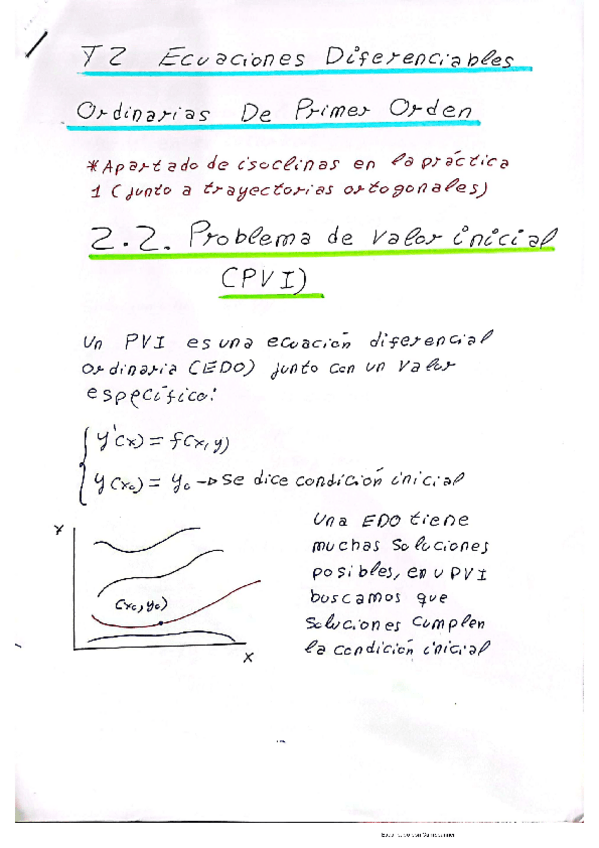 T2 Ecuaciones Diferenciables
Ordinarias De Primer Orden
*Apartado de isoclinas en la práctica
1 (junto a trayectorias ortogonales)
2.2. Problema de valor inicial
(PVI)
Un PVI es una ecuación diferencial
ordinaria (EDO) junto con un valor
específico:
y'(x) = f(x,y)
y(x₀) = y₀ → Se dice condición inicial
Y
(x₀,y₀)
X
Una EDO tiene
muchas soluciones
posibles, en u PVI
buscamos que
soluciones cumplen
la condición inicial